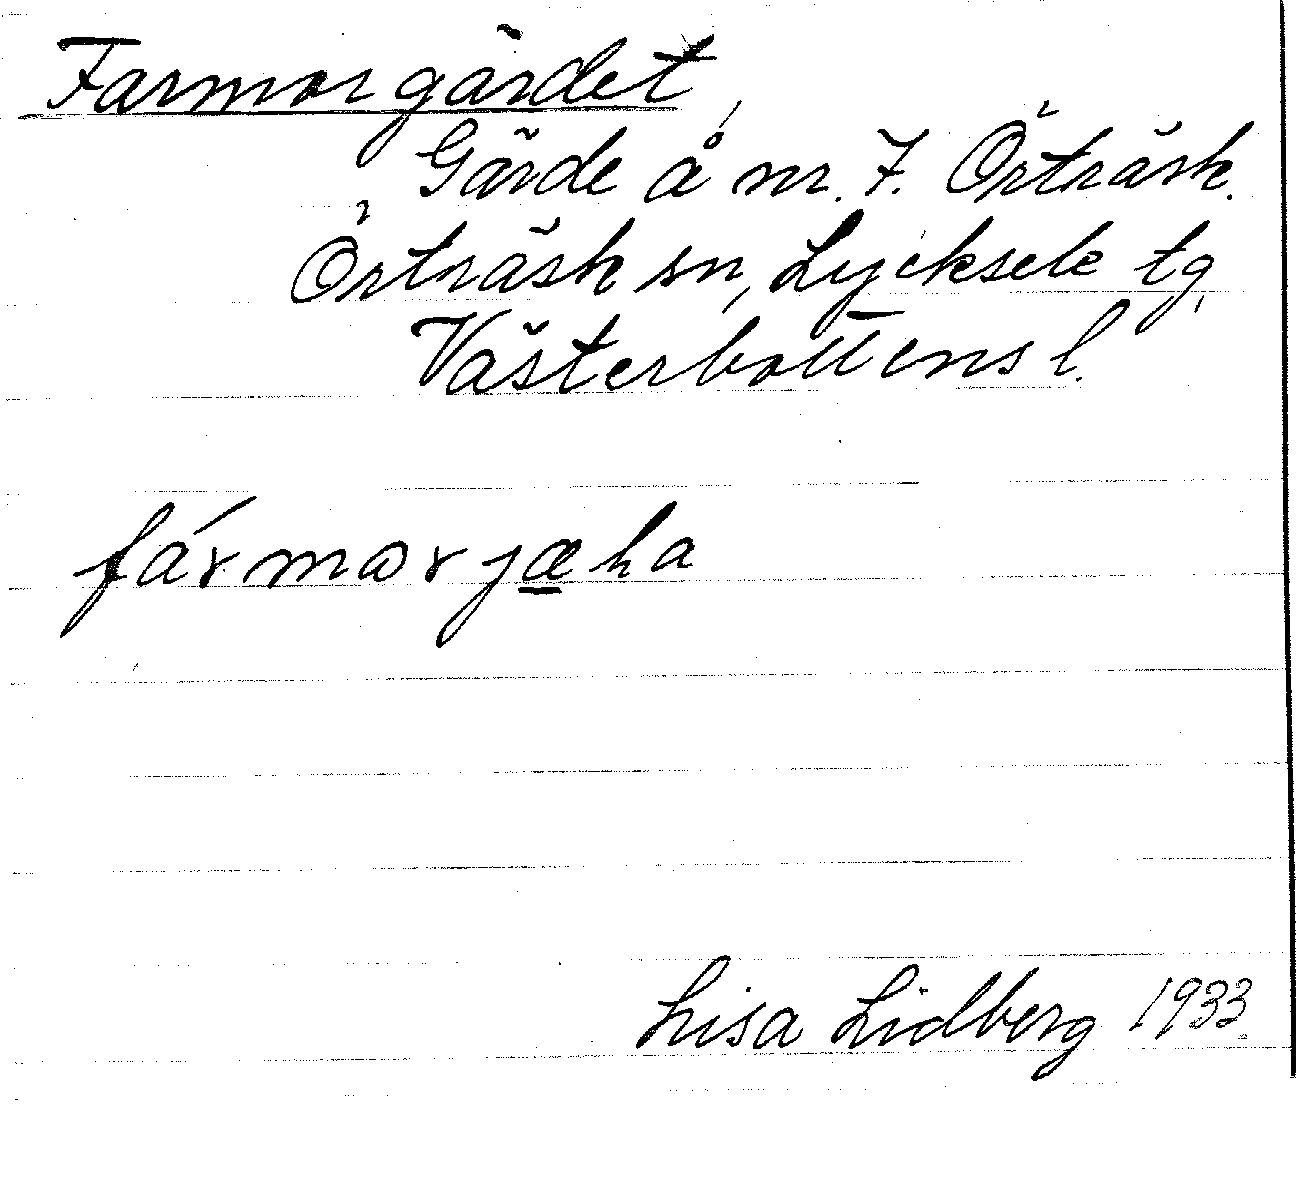 Farmorgärdet,
Gärde å nr. 7. Örträsk.
Örträsk sn, Lycksele tg,
Västerbottens l.
fármorjæha
Lisa Lidberg 1933.